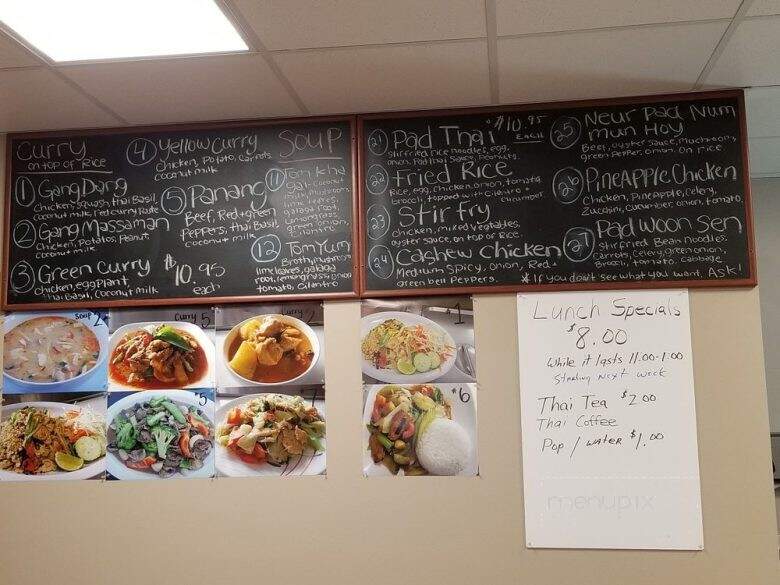 Curry
on top of Rice
1 Gang Dang
chicken, squash, thai Basil,
coconut milk, red curry paste
2 Gang Massaman
chicken, Potatos, Peanut,
coconut milk
3 Green Curry
chicken, eggplant,
thai Basil, coconut milk
4 Yellow Curry
chicken, Potato, carrots
coconut milk
5 Panang
Beef, Red + green
Peppers, thai Basil
coconut milk
$10.95
each
Soup
11 Tom kha
gai - coconut
milk, mushrooms
lime leaves,
galaga root,
lemongrass,
green onion,
cilantro
12 Tom Yum
Broth, mushrooms
lime leaves, galaga
root, lemongrass, onion
tomato, cilantro
$10.95
Each
21 Pad Thai
stirfried rice noodles, egg,
onion, Pad thai sauce, Peanuts
22 Fried Rice
Rice, egg, chicken, onion, tomato,
brocoli, topped with cilantro +
cucumber
23 Stirfry
chicken, mixed vegetables,
oyster sauce, on top of rice.
24 Cashew Chicken
Medium spicy, onion, Red +
green bell Peppers.
25 Neur Pad Num
mun Hoy
Beef, oyster sauce, mushroom,
green Pepper, onion. on rice
26 PineApple Chicken
Chicken, Pineapple, celery,
Zuccini, cucumber, onion, tomato,
27 Pad Woon Sen
Stirfried Bean noodles,
carrots, celery, green onion,
Brocoli, tomato, cabbage
* If you don't see what you want, Ask!
Soup 2
Curry 5
Curry 2
1
5
7
*6
Lunch Specials
$8.00
While it lasts 11:00-1:00
Starting Next week
Thai Tea $2.00
Thai Coffee
Pop / water $1.00
menupix